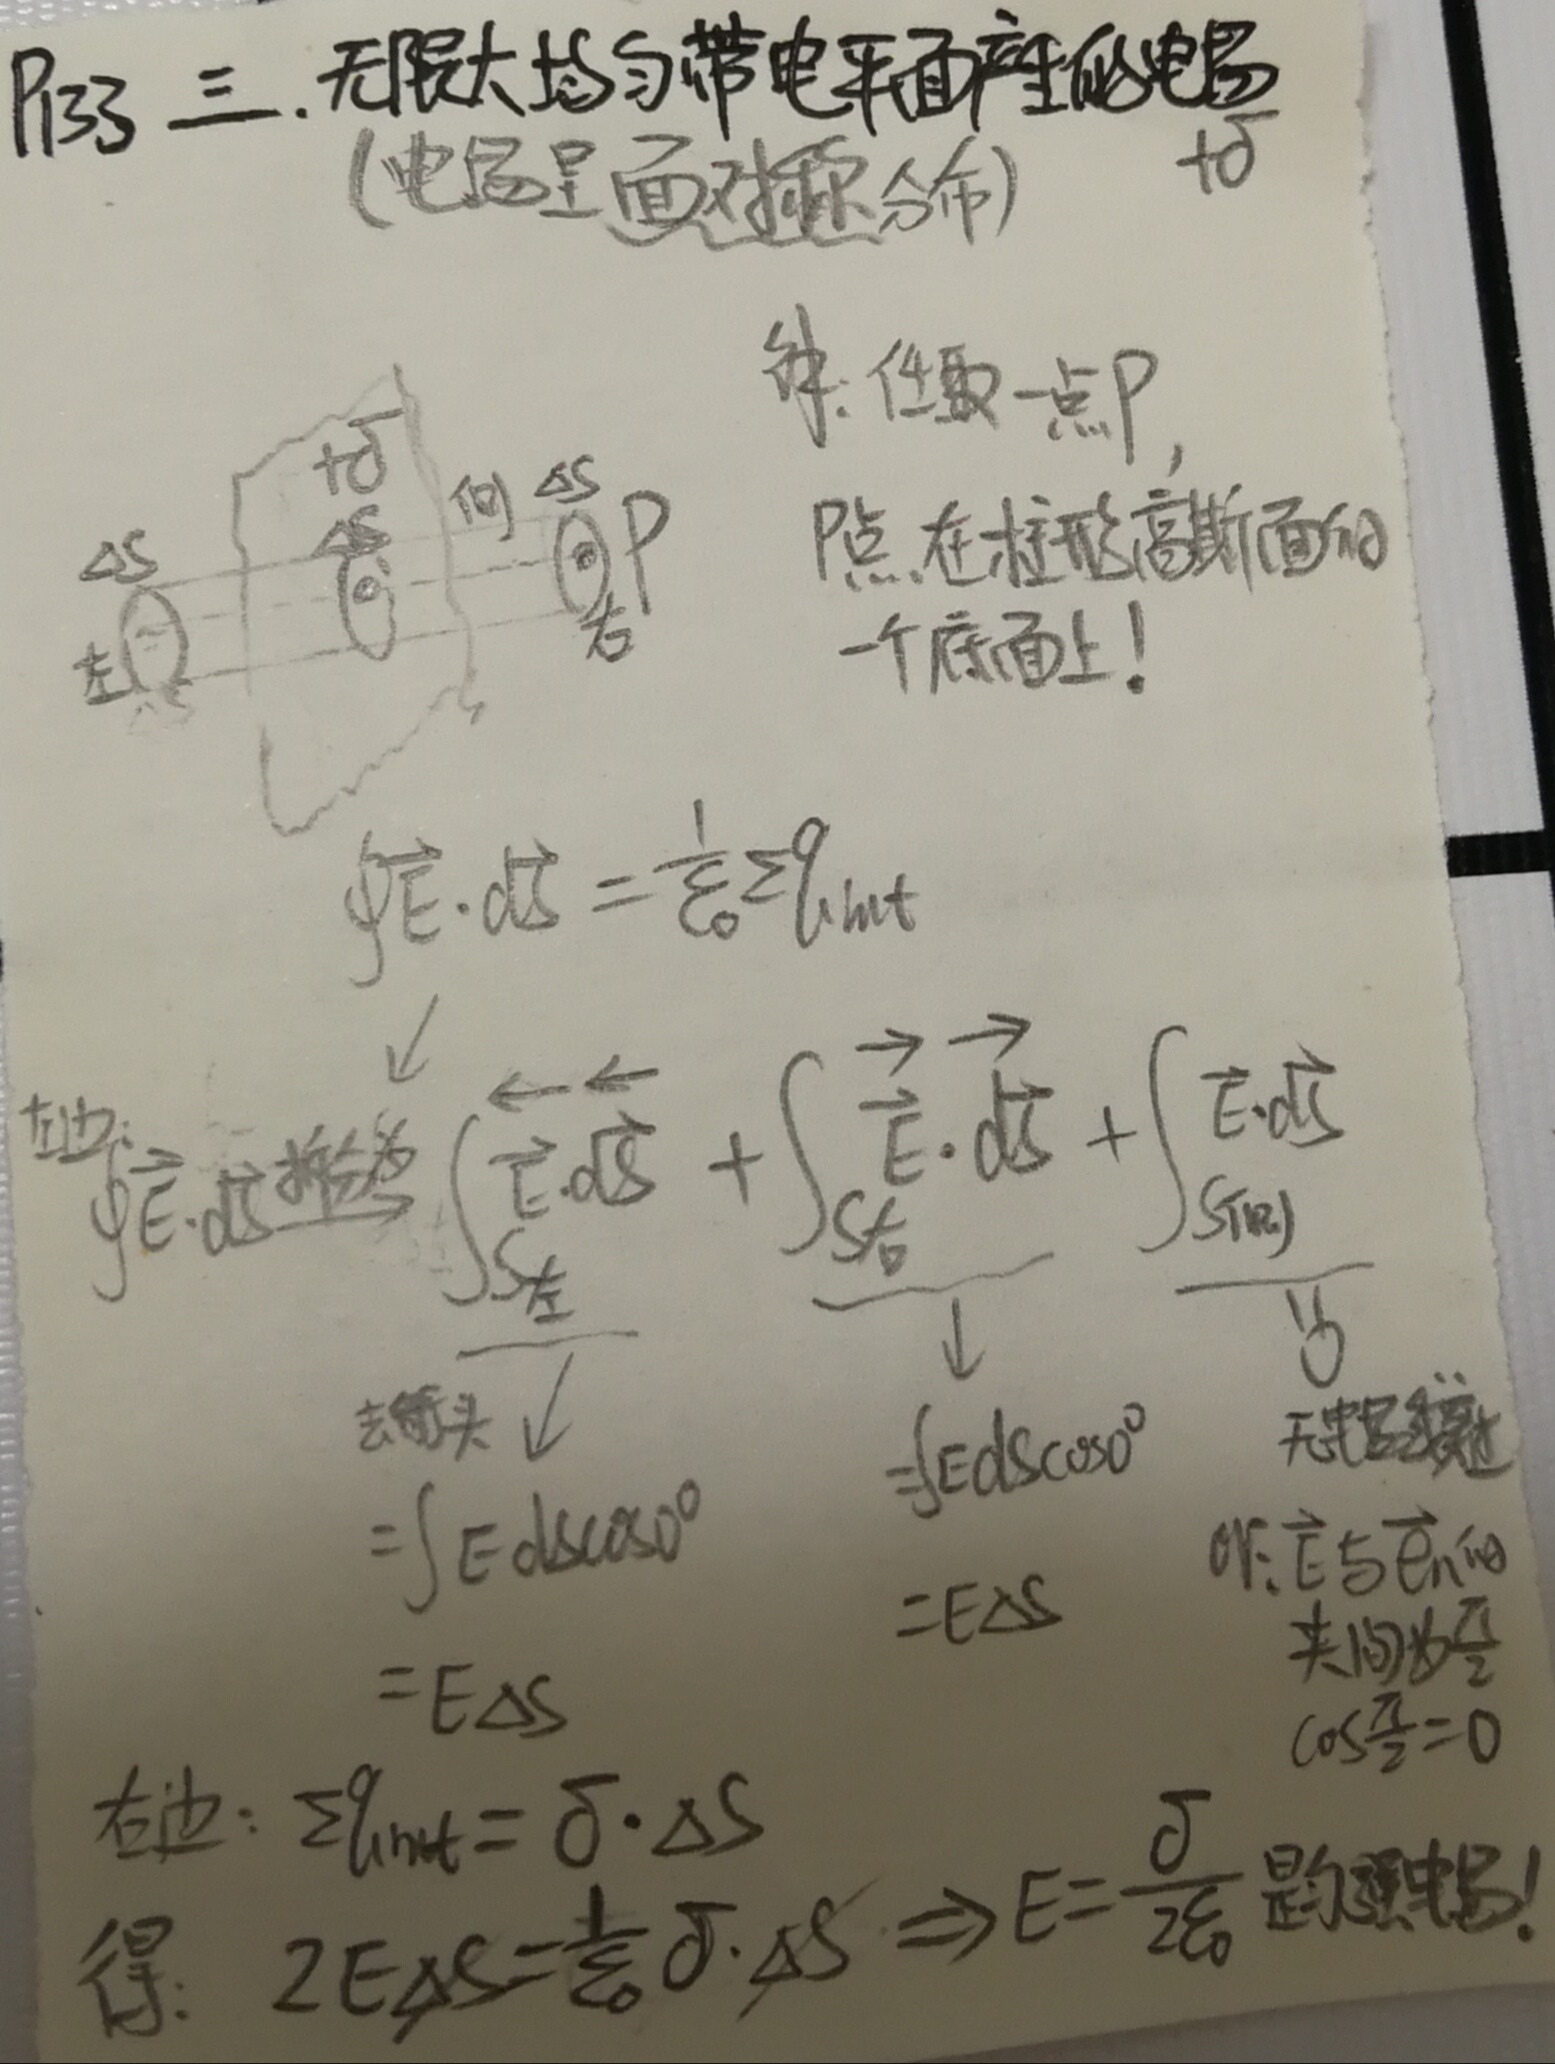 P133 三.无限大均匀带电平面产生的电场
(电场呈面对称分布) +σ
解:任取一点P,
P点在柱形高斯面的
一个底面上!
+σ
ΔS 侧 ΔS ΔS P
左 右
∮E⃗·dS⃗ = 1/ε₀ Σqᵢₙₜ
左边:
∮E⃗·dS⃗ 拆分为 ∫S左 E⃗·dS⃗ + ∫S右 E⃗·dS⃗ + ∫S侧 E⃗·dS⃗
去箭头
=∫EdScos0⁰ =∫EdScos0⁰ 0 ∵
=EΔS =EΔS 无电场线穿过
or: E⃗与e⃗n的
夹间为π/2
cosπ/2=0
右边: Σqᵢₙₜ = σ·ΔS
得: 2EΔS = 1/ε₀ σ·ΔS ⇒ E = σ/2ε₀ 是匀强电场!